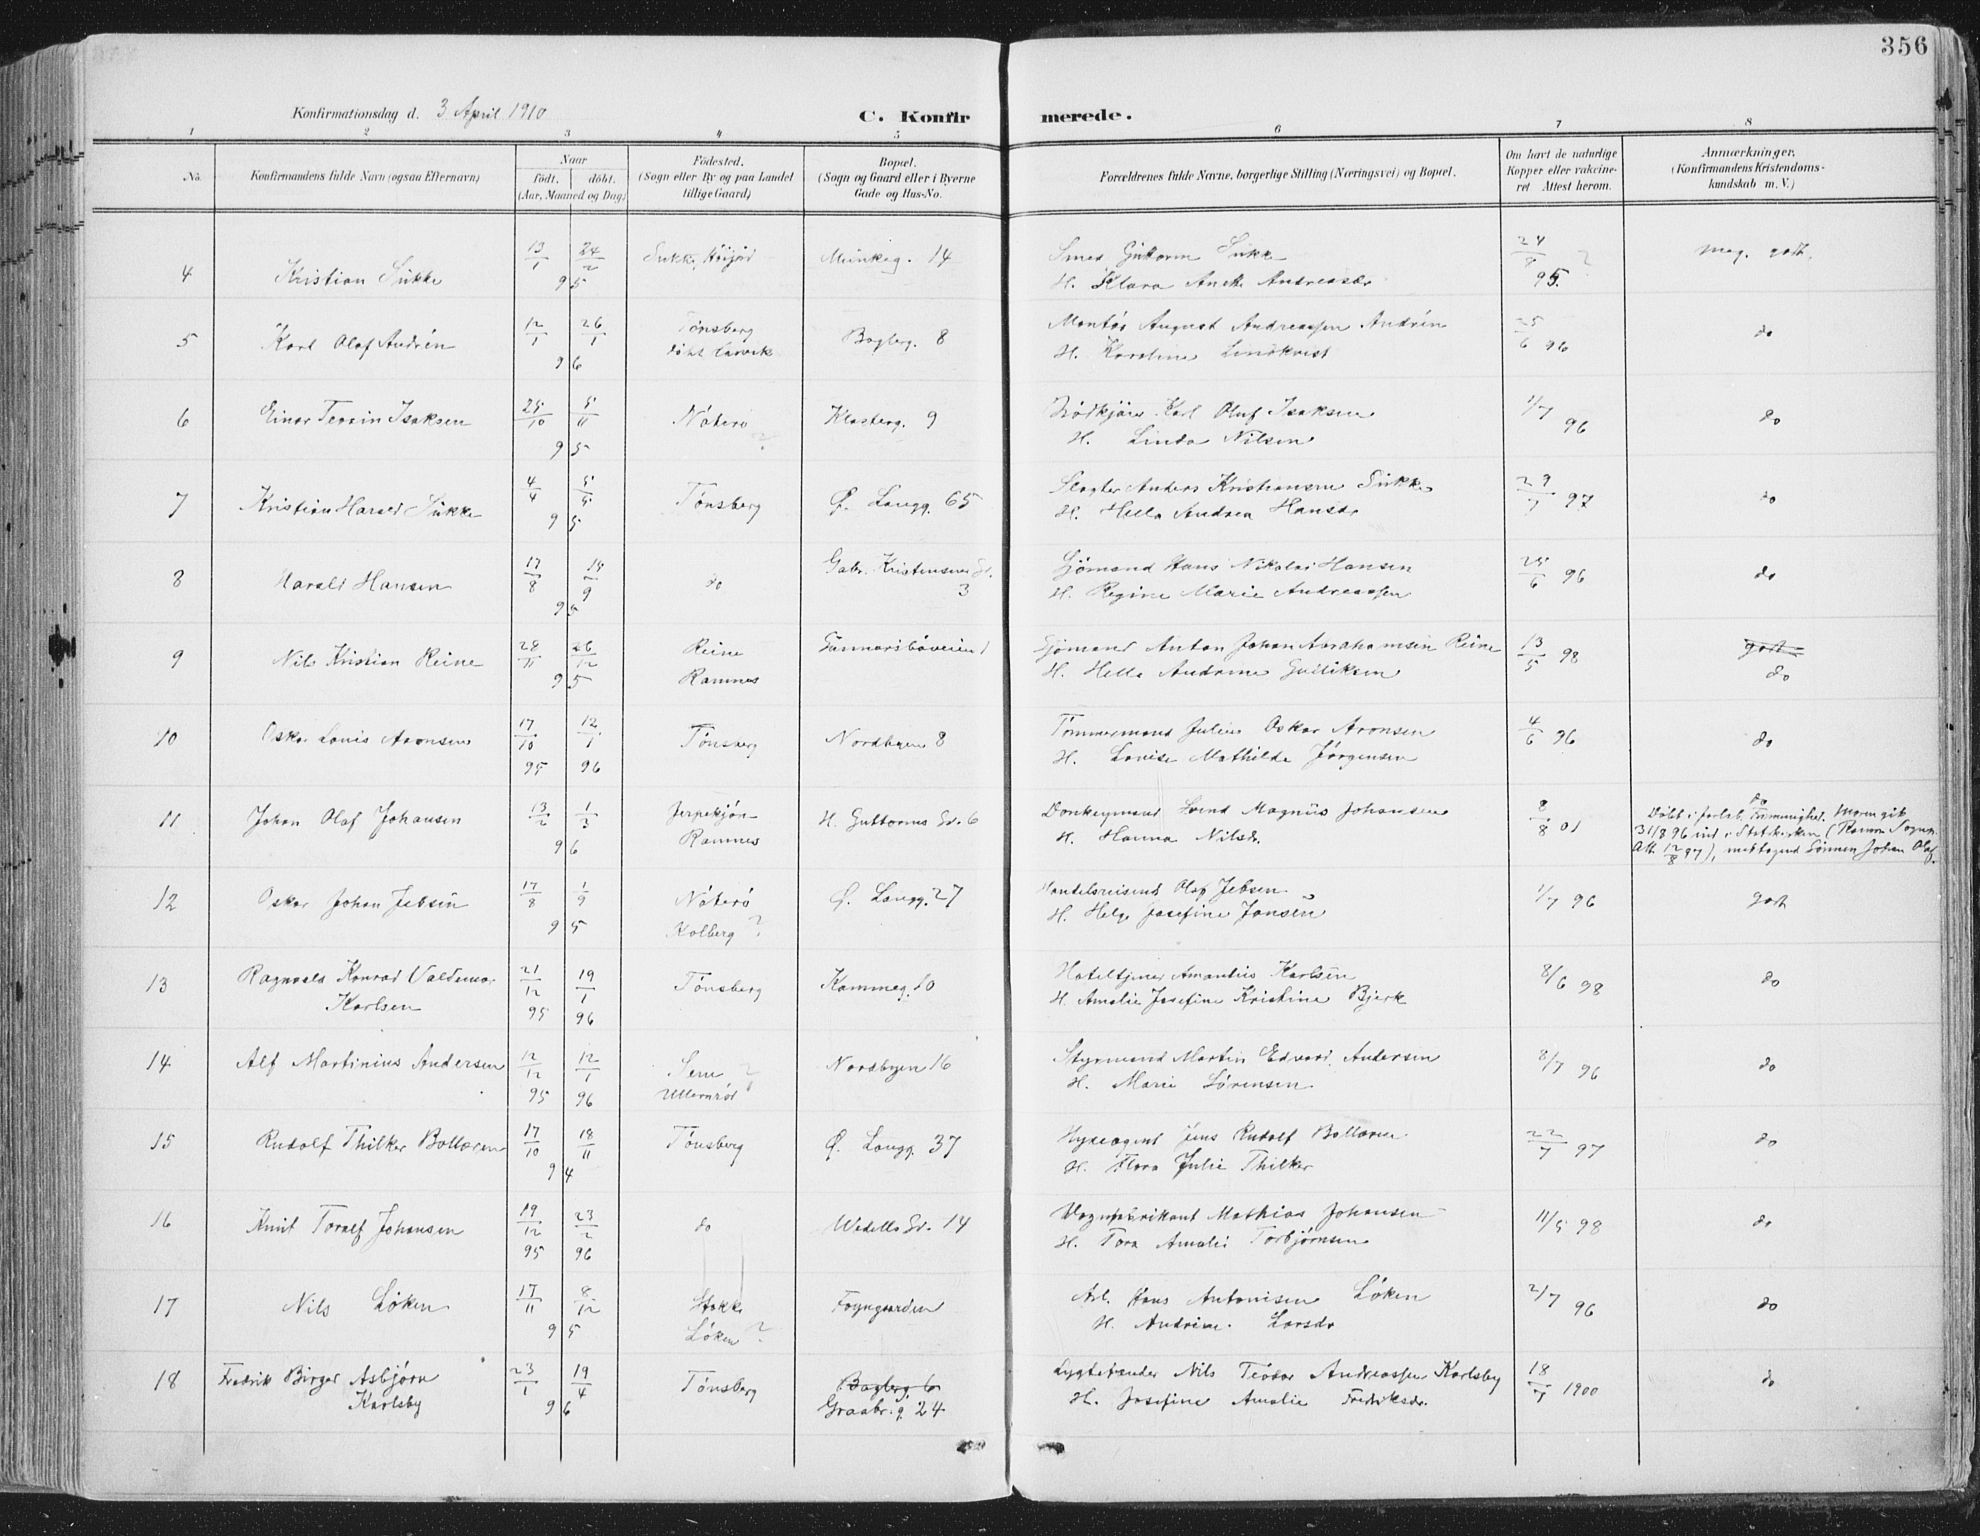 356
Konfirmationsdag d. 3 April 1910
C. Konfirmerede.
1 2 3 4 5 6 7 8
No. Konfirmandens fulde Navn (ogsaa Efternavn) Naar født. døbt. (Aar, Maaned og Dag) Fødested. (Sogn eller By og paa Landet tillige Gaard) Bopæl. (Sogn og Gaard eller i Byerne Gade og Hus-No. Forældrenes fulde Navne, borgerlige Stilling (Næringsvei) og Bopæl. Om havt de naturlige Kopper eller vakcineret Attest herom. Anmærkninger. (Konfirmandens Kristendomskundskab m. V.)
4 Kristian Sukke 13/1 24/2 95 Sukke, Høijord Munkeg. 14 Smed Guttorm Sukke
H. Klara Andreasdr 24/8 ? 95. meg. godt.
5 Karl Olaf Andrén 12/1 26/1 96 Tønsberg døbt Larvik Bagberg. 8 Montør August Andreassen Andrén
H. Karoline Lindkvist 25/6 96 do
6 Einar Isaksen 25/10 5/11 95 Nøterø ? Klosterg. 9 Karl Oluf Isaksen
H. Linda Nilsen 1/7 96 do
7 Kristian Harald Sukke 4/4 5/5 95 Tønsberg Ø. Langg. 65 Slagter Anders Kristiansen Sukke
H. Hella Andrea Hansdr 29/7 97 do
8 Harald Hansen 17/8 15/9 95 do Gabr. Kristensens Gd. 3 Sjømand Hans Nikolai Hansen
H. Regine Marie Andreassen 25/6 96 do
9 Nils Kristian Reine 28/11 26/12 95 Reine Ramnes Gunnarsbøveien 1 Sjømand Anton Johan Abrahamsen Reine
H. Hella Andrine Gulliksen 13/5 98 godt do
10 Oskar Louis Aronsen 17/10 95 12/1 96 Tønsberg Nordbyen 8 Tømmermand Julius Oskar Aronsen
H. Lovise Mathilde Jørgensen 4/6 96 do
11 Johan Olaf Johansen 13/2 1/3 96 Ramnes H. Guttorms Gd. 6 Donkeymand Svend Magnus Johansen
H. Hanna Nilsdr. 8/8 01 do
Døbt i menighed. Moren gik
31/8 96 ind i Statskirken (Ramnes Sogn.
Att. 12/8 97), medtagend Sønnen Johan Olaf.
12 Oskar Johan Jebsen 17/8 1/9 95 Nøterø Kolberg ? Ø. Langg. 27 Handelsreisende Olaf Jebsen
H. Helga Josefine Jansen 1/7 96 godt
13 Ragnvald Konrad Valdemar Karlsen 21/12 95 19/1 96 Tønsberg Kammeg. 10 Hoteltjener Amandus Karlsen
H. Amalie Josefine Kristine Bjerk 8/6 98 do
14 Alf Martinius Andersen 12/12 95 12/1 96 Sem ? Nordbyen 16 Styrmand Martin Edvard Andersen
H. Marie Sørensen 8/7 96 do
15 Rudolf Thilker Bollæren 17/10 18/11 94 Tønsberg Ø. Langg. 37 Hyreagent Jens Rudolf Bollæren
H. Flora Julie Thilker 22/7 97 do
16 Knut Toralf Johansen 19/12 95 23/2 96 do Wedels Gd. 14 Vognfabrikant Mathias Johansen
H. Tora Amalie Torbjørnsen 11/5 98 do
17 Nils Løken 17/11 8/12 95 Stokke Løken ? Fogngaarden Arb. Hans Antonisen Løken
H. Andrine Larsdr 2/7 96 do
18 Fredrik Birger Asbjørn Karlsby 23/1 19/4 96 Tønsberg Bagberg. 6 Graabr.g. 24 Lygtetænder Nils Teodor Andreassen Karlsby
H. Josefine Amalie Fredriksdr. 18/7 1900 do